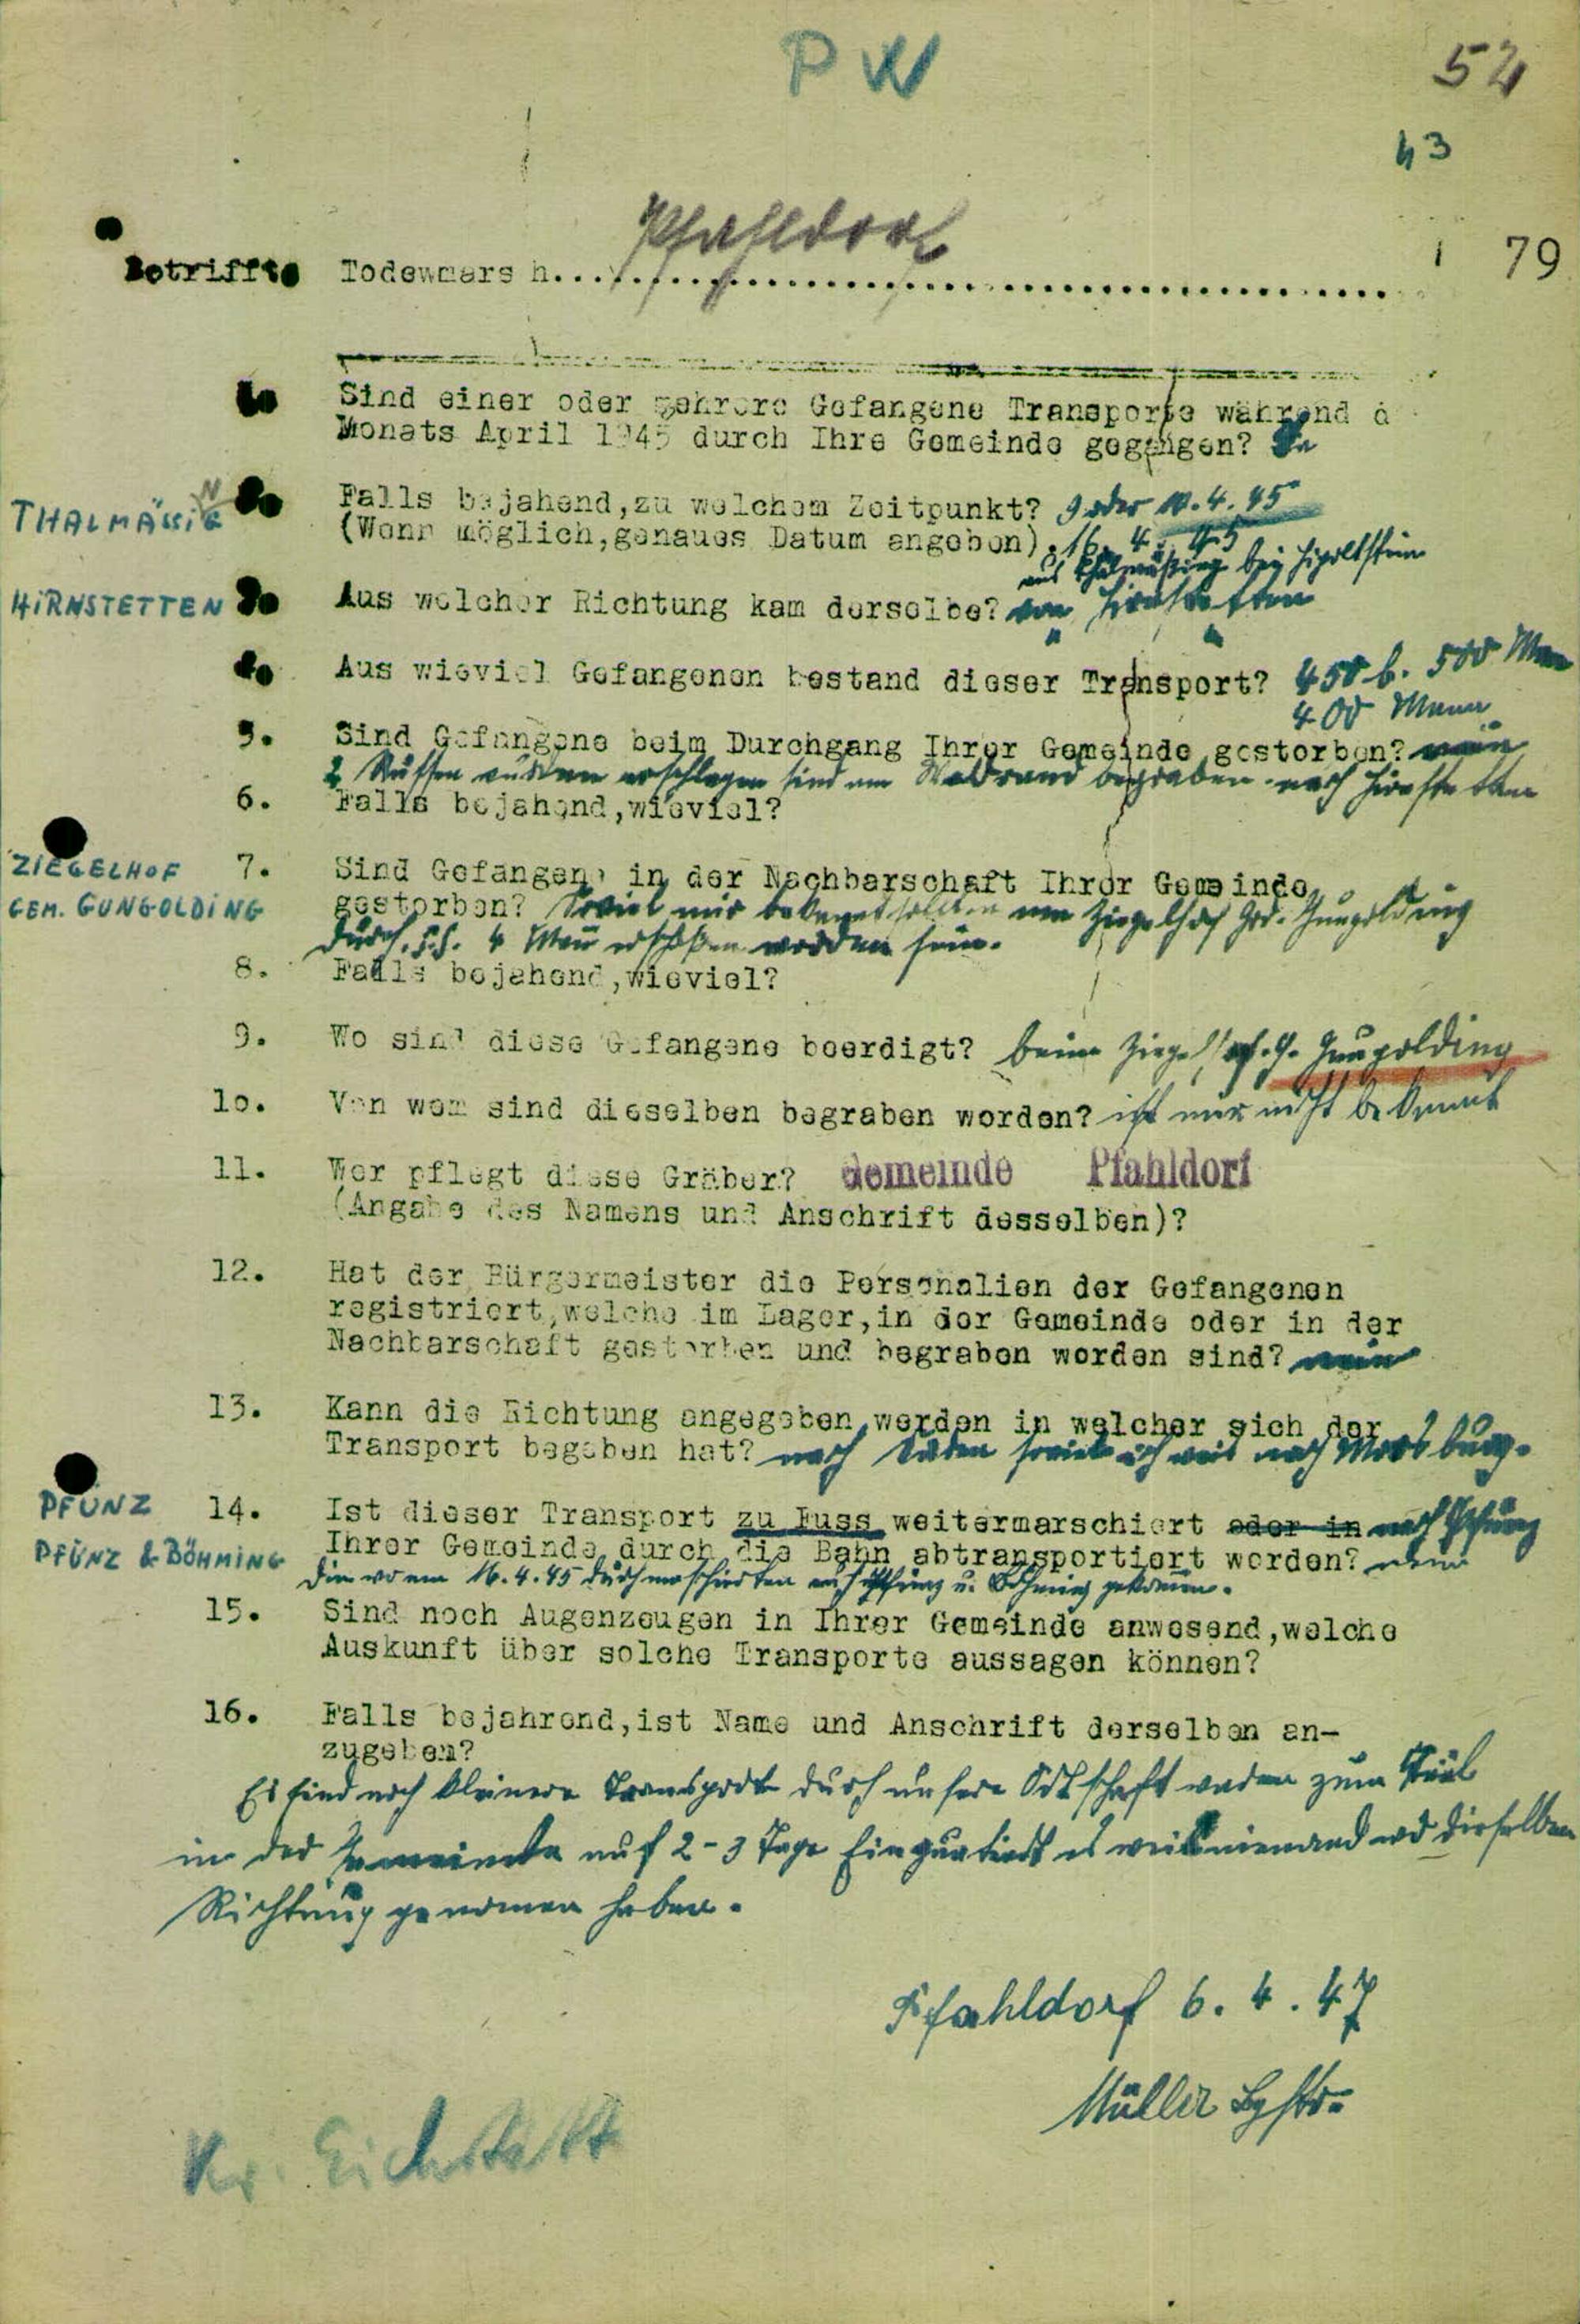 PW
52
43
Pfahldorf
79
Betrifft: Todesmarsch
1. Sind einer oder mehrere Gefangene Transporte während d
Monats April 1945 durch Ihre Gemeinde gegangen? Ja
THALMÄSSING
2. Falls bejahend,zu welchem Zeitpunkt? 9 oder 10.4.45
(Wenn möglich,genaues Datum angeben). 16. 4. 45
aus Thalmässing bei Hipoltstein
HIRNSTETTEN
3. Aus welcher Richtung kam derselbe? von Hirnstetten
" "
4. Aus wieviel Gefangenen bestand dieser Transport? 450 b. 500 Mann
400 Mann
5. Sind Gefangene beim Durchgang Ihrer Gemeinde gestorben? nein
2 Russen wurden erschlagen sind am Waldrand begraben nach Hirnstetten
6. Falls bejahend,wieviel?
ZIEGELHOF
GEM. GUNGOLDING
7. Sind Gefangene in der Nachbarschaft Ihrer Gemeinde
gestorben? Soviel mir bekannt sollten am Ziegelhof Gde. Gungolding
durch S.S. 4 Man erschoßen worden sein.
8. Falls bejahend,wieviel?
9. Wo sind diese Gefangene beerdigt? beim Ziegelhof. G. Gungolding
10. Von wem sind dieselben begraben worden? ist mir nicht bekannt
11. Wer pflegt diese Gräber? Gemeinde Pfahldorf
(Angabe des Namens und Anschrift desselben)?
12. Hat der Bürgermeister die Personalien der Gefangenen
registriert,welche im Lager,in der Gemeinde oder in der
Nachbarschaft gestorben und begraben worden sind? nein
13. Kann die Richtung angegeben werden in welcher sich der
Transport begeben hat? nach Süden soviel ich weis nach Moosburg.
PFÜNZ
14. Ist dieser Transport zu Fuss weitermarschiert oder in nach Pfünz
PFÜNZ & BÖHMING
Ihrer Gemeinde durch die Bahn abtransportiert worden? nein
die vom 16.4.45 durchmaschierten nach Pfünz u. Böhming gekomen.
15. Sind noch Augenzeugen in Ihrer Gemeinde anwesend,welche
Auskunft über solche Transporte aussagen können?
16. Falls bejahrend,ist Name und Anschrift derselben an-
zugeben?
Es sind noch kleinere Transport durch unsere Ortschaft waren zum
in der Gemeinde auf 2 - 3 Tage Einquatiert es weis niemand wo dieselben
Richtung genomen haben.
Pfahldorf 6. 4. 47
Müller Bgstr.
Kr. Eichstätt